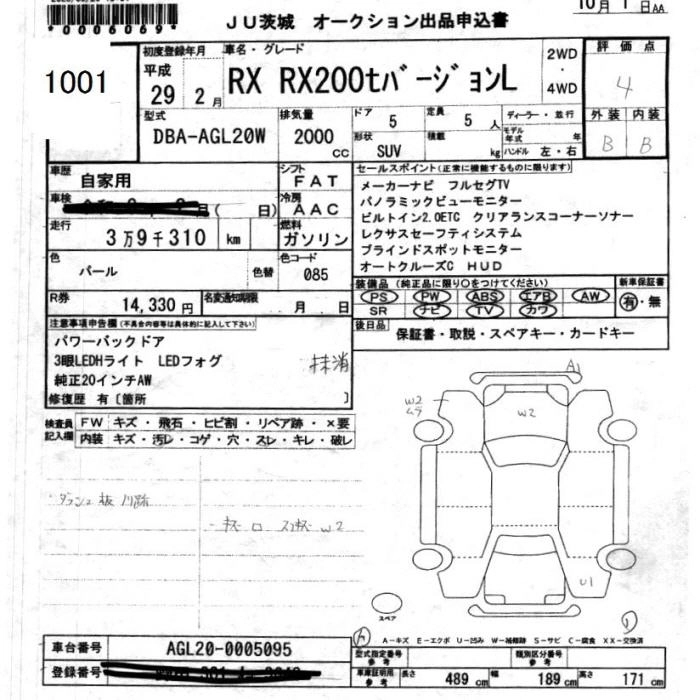 *0006069*
JU茨城 オークション出品申込書
10月 1日AA
1001
初度登録年月
平成
29 2月
車名・グレード
RX RX200tバージョンL
2WD
・
4WD
評価点
4
型式
DBA-AGL20W
排気量
2000
CC
ドア
5
定員
5
人
形状
SUV
積載
kg
ディーラー・並行
モデル年式
年
ハンドル 左・右
外装 内装
B B
車歴
自家用
シフト
FAT
車検
( 日)
冷房
AAC
走行
3万9千310 km
燃料
ガソリン
色
パール
色替
色コード
085
R券
14,330円
名変通知期限
月 日
セールスポイント(正常に機能するものに限ります)
メーカーナビ フルセグTV
パノラミックビューモニター
ビルトイン2.0ETC クリアランスコーナーソナー
レクサスセーフティシステム
ブラインドスポットモニター
オートクルーズC HUD
装備品(純正品に限り○をつけてください)
PS PW ABS エアB AW
SR ナビ TV カワ
新車保証書
有・無
後日品
保証書・取説・スペアキー・カードキー
注意事項申告欄(不具合内容等は具体的に記入して下さい)
パワーバックドア
3眼LEDHライト LEDフォグ
純正20インチAW
抹消
修復歴 有〔箇所 〕
検査員記入欄
FW キズ・飛石・ヒビ割・リペア跡・×要
内装 キズ・汚レ・コゲ・穴・スレ・キレ・破レ
A1
W2
ムラ
W2
U1
スペア
A-キズ E-エクボ U-凹み W-補修跡 S-サビ C-腐食 XX-交換済
車台番号
AGL20-0005095
登録番号
型式指定番号
参考
類別区分番号
参考
車庫証明用
参考
長さ 489cm 幅 189cm 高さ 171cm